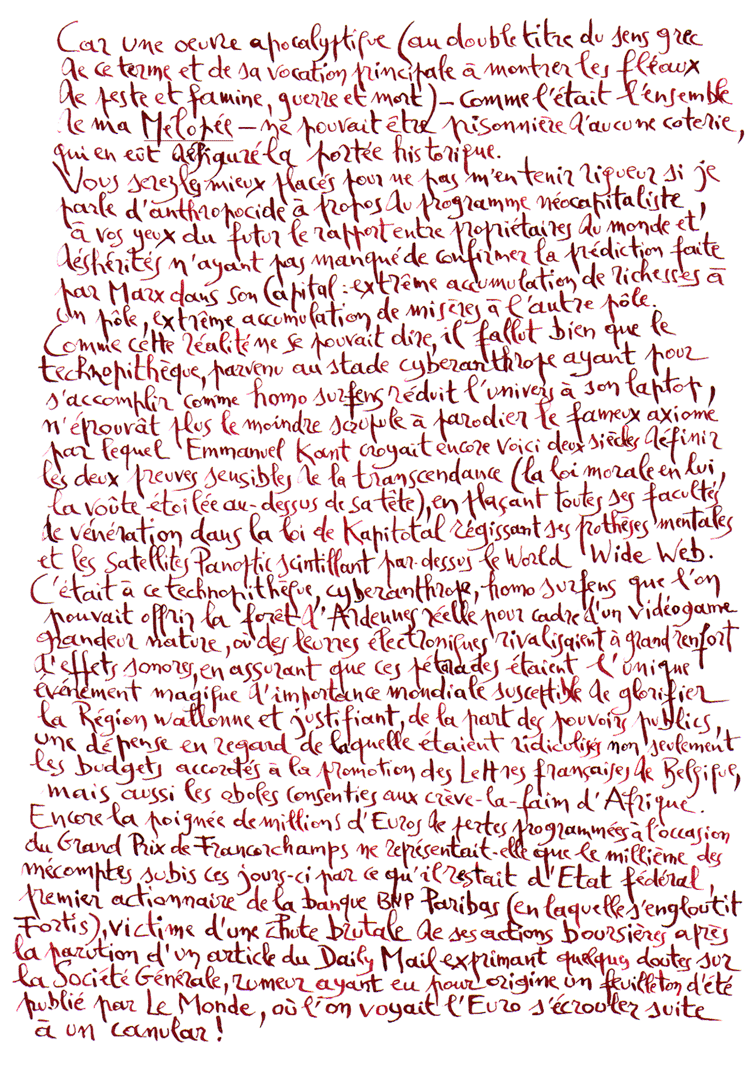 Car une oeuvre apocalyptique (au double titre du sens grec
de ce terme et de sa vocation principale à montrer les fléaux
de peste et famine, guerre et mort) – comme l'était l'ensemble
de ma Mélopée – ne pouvait être prisonnière d'aucune coterie,
qui en eût défiguré la portée historique.
Vous serez les mieux placés pour ne pas m'en tenir rigueur si je
parle d'anthropocide à propos du programme néocapitaliste,
à vos yeux du futur le rapport entre propriétaires du monde et
déshérités n'ayant pas manqué de confirmer la prédiction faite
par Marx dans son Capital : extrême accumulation de richesses à
un pôle, extrême accumulation de misères à l'autre pôle.
Comme cette réalité ne se pouvait dire, il fallut bien que le
technopithèque, parvenu au stade cyberanthrope ayant pour
s'accomplir comme homo surfens réduit l'univers à son laptop,
n'éprouvât plus le moindre scrupule à parodier le fameux axiome
par lequel Emmanuel Kant croyait encore voici deux siècles définir
les deux preuves sensibles de la transcendance (la loi morale en lui,
la voûte étoilée au-dessus de sa tête), en plaçant toutes ses facultés
de vénération dans la loi de Kapitotal régissant ses prothèses mentales
et les Satellites Panoptic scintillant par-dessus le World Wide Web.
C'était à ce technopithèque, cyberanthrope, homo surfens que l'on
pouvait offrir la forêt d'Ardennes réelle pour cadre d'un vidéogame
grandeur nature, où des leurres électroniques rivalisaient à grand renfort
d'effets sonores, en assurant que ces pétarades étaient l'unique
événement magique d'importance mondiale susceptible de glorifier
la Région wallonne et justifiant, de la part des pouvoirs publics,
une dépense en regard de laquelle étaient ridiculisés non seulement
les budgets accordés à la promotion des Lettres françaises de Belgique,
mais aussi les oboles consenties aux crève-la-faim d'Afrique.
Encore la poignée de millions d'Euros de pertes programmées à l'occasion
du Grand Prix de Francorchamps ne représentait-elle que le millième des
mécomptes subis ces jours-ci par ce qu'il restait d'Etat fédéral,
premier actionnaire de la banque BNP Paribas (en laquelle s'engloutit
Fortis), victime d'une chute brutale de ses actions boursières après
la parution d'un article du Daily Mail exprimant quelques doutes sur
la Société Générale, rumeur ayant eu pour origine un feuilleton d'été
publié par Le Monde, où l'on voyait l'Euro s'écrouler suite
à un canular !